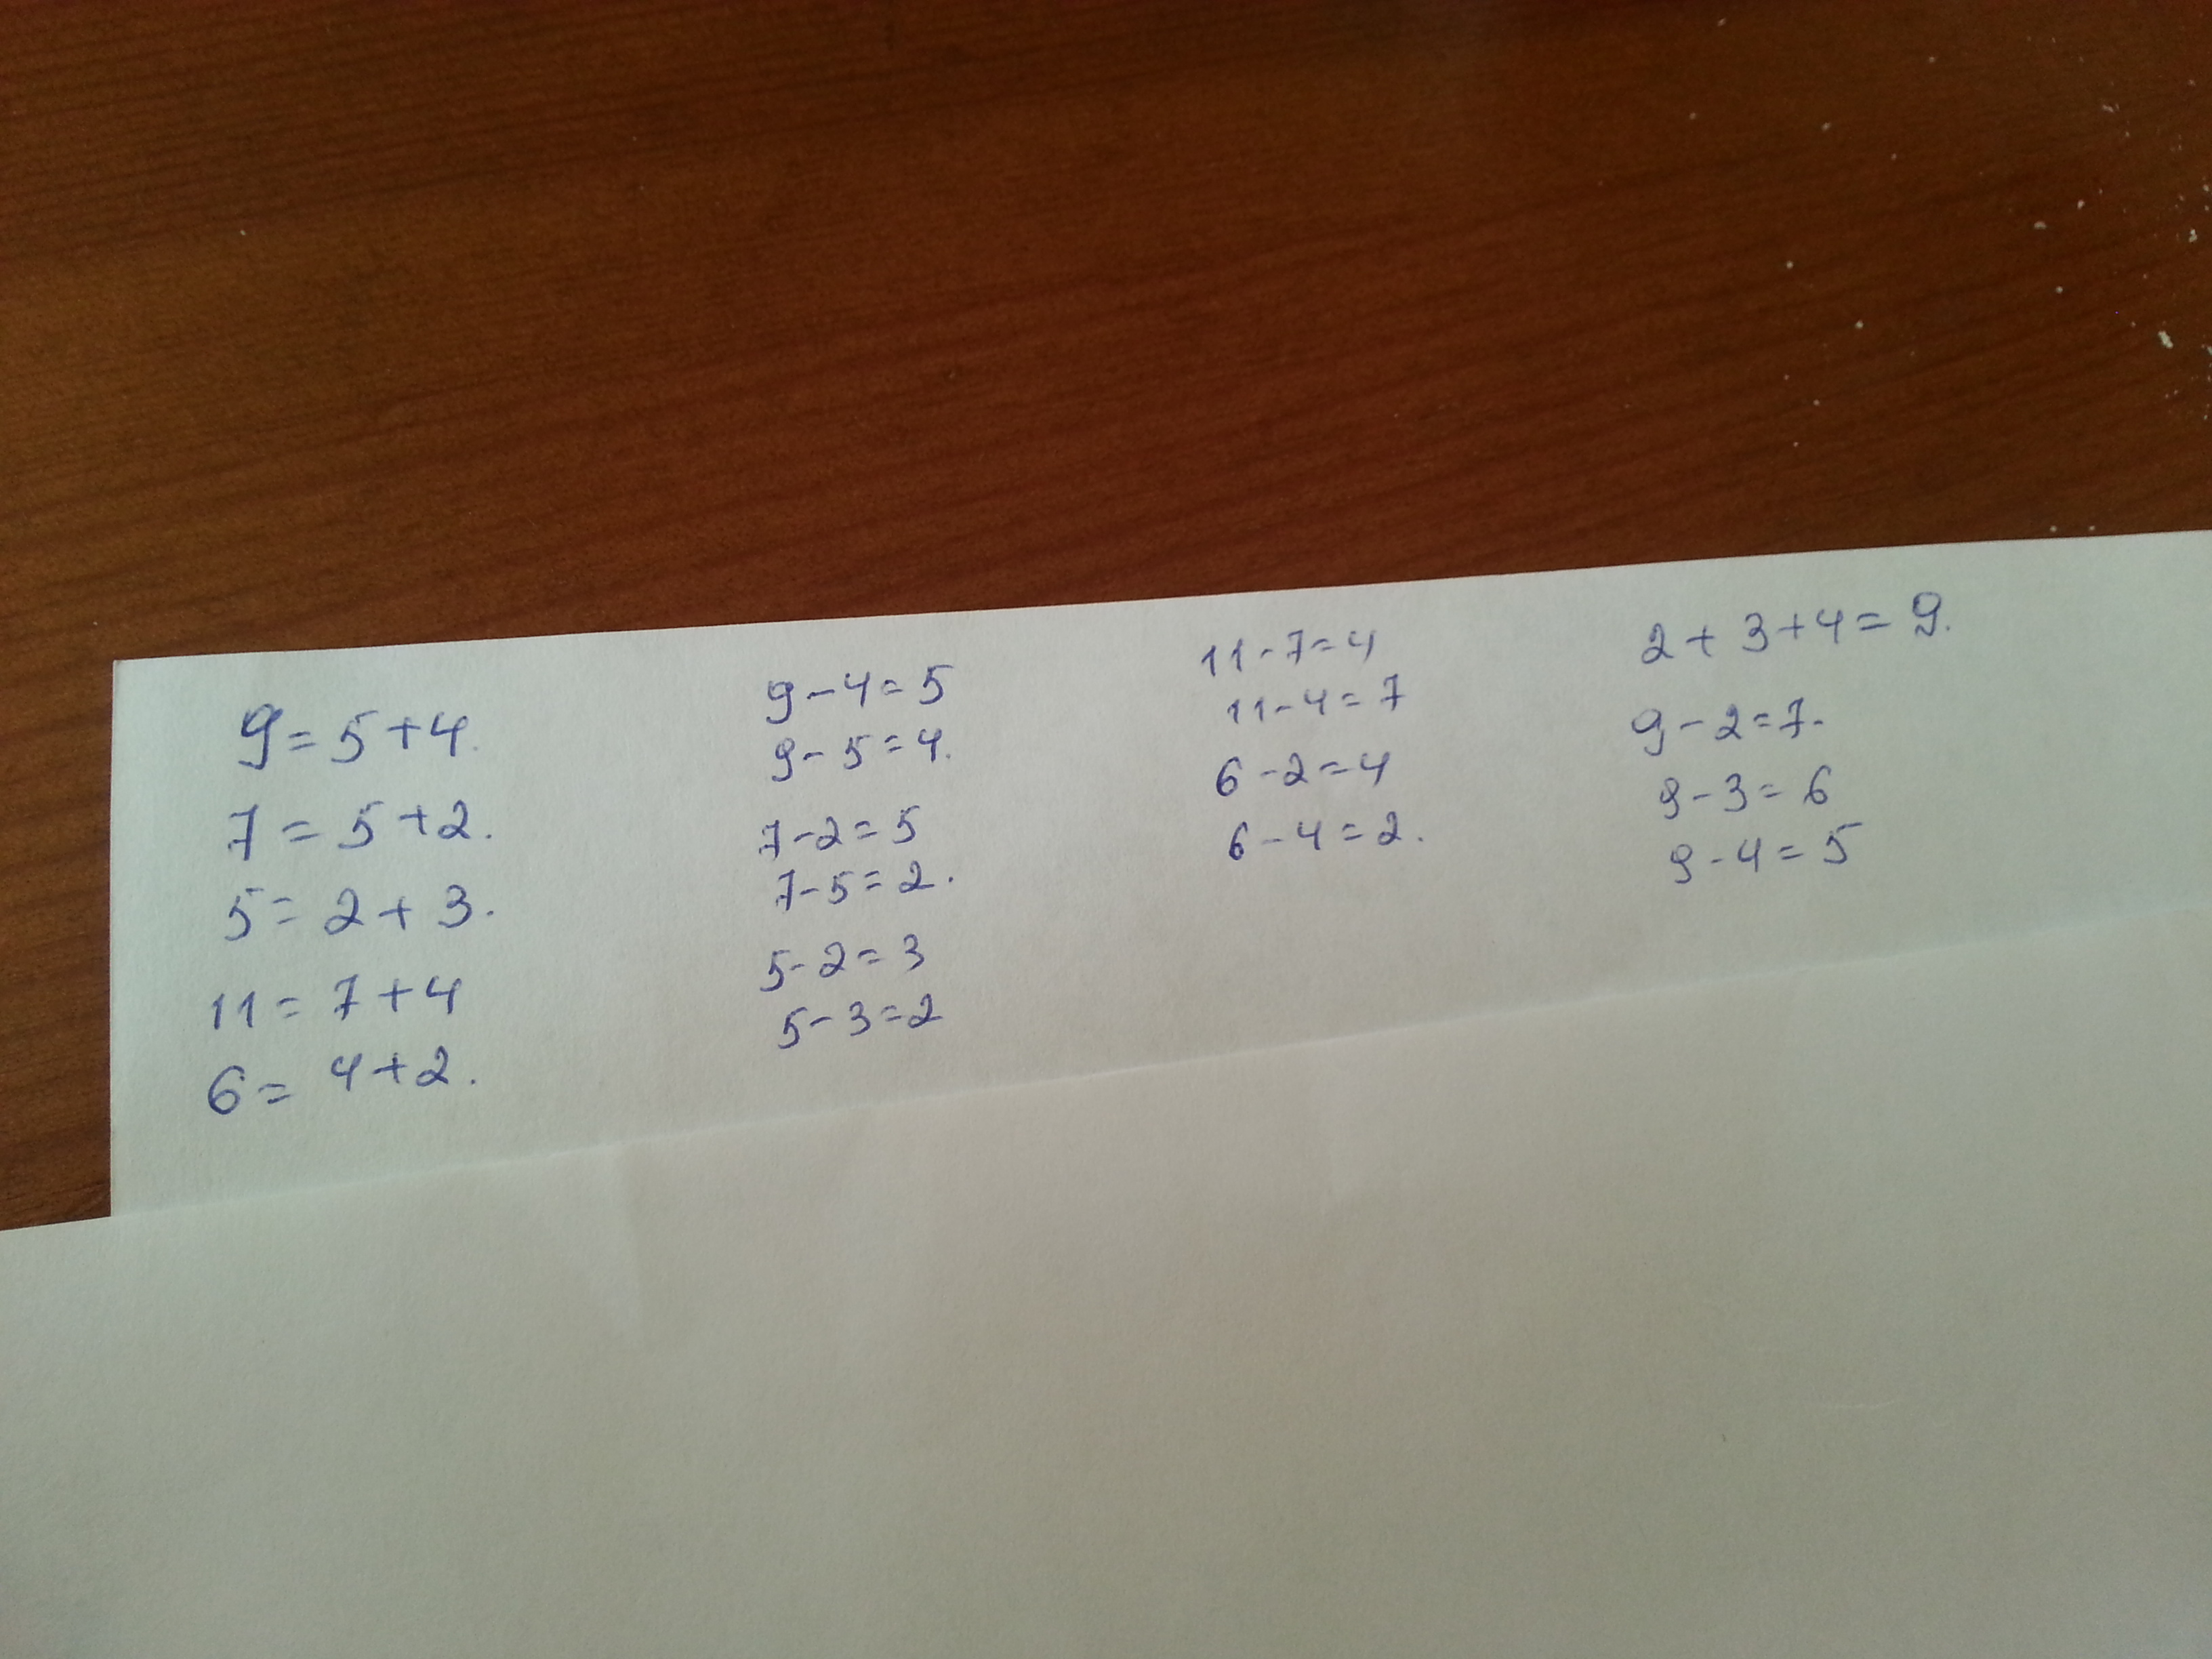 9 = 5 + 4.
7 = 5 + 2.
5 = 2 + 3.
11 = 7 + 4
6 = 4 + 2.
9 - 4 = 5
9 - 5 = 4.
7 - 2 = 5
7 - 5 = 2.
5 - 2 = 3
5 - 3 = 2
11 - 7 = 4
11 - 4 = 7
6 - 2 = 4
6 - 4 = 2.
2 + 3 + 4 = 9.
9 - 2 = 7.
9 - 3 = 6
9 - 4 = 5